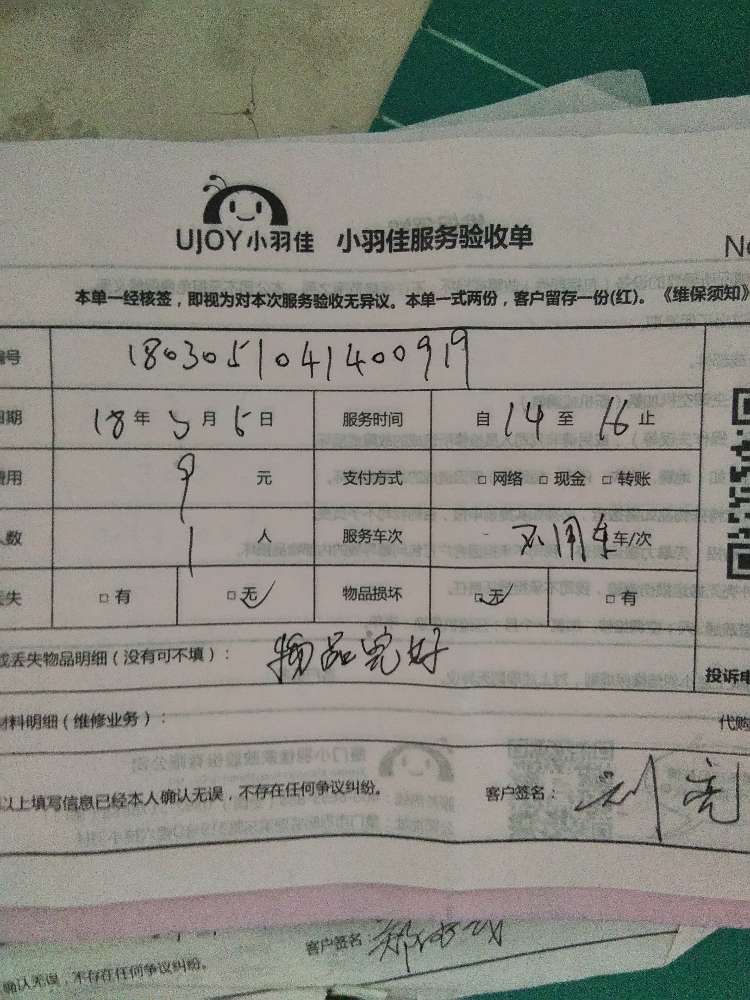 UJOY小羽佳 小羽佳服务验收单
No
本单一经核签，即视为对本次服务验收无异议。本单一式两份，客户留存一份(红)。《维保须知》
编号 1803051041400919
日期 18年3月5日 服务时间 自14至16止
费用 元 支付方式 □网络 □现金 □转账
人数 1人 服务车次 不用车 车/次
丢失 □有 □无 物品损坏 □无 □有
或丢失物品明细（没有可不填）： 物品完好
投诉电
材料明细（维修业务）：
代购
以上填写信息已经本人确认无误，不存在任何争议纠纷。 客户签名： 刘亮
客户签名：
确认无误，不存在任何争议纠纷。